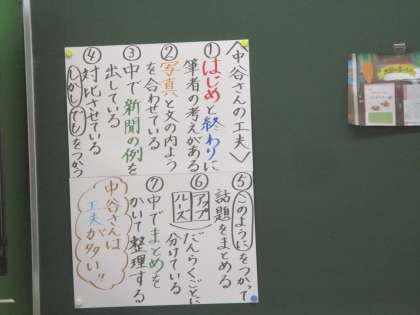 〈中谷さんの工夫〉
①はじめと終わりに
筆者の考えがある
②写真と文の内よう
を合わせている
③中で新聞の例を
出している
④対比させている
しかしでもをつかう
⑤このようにをつかって
話題をまとめる
⑥アップ
ルーズ
だんらくごとに
分けている
⑦中でまとめを
かいて整理する
中谷さんは
工夫が多い!!